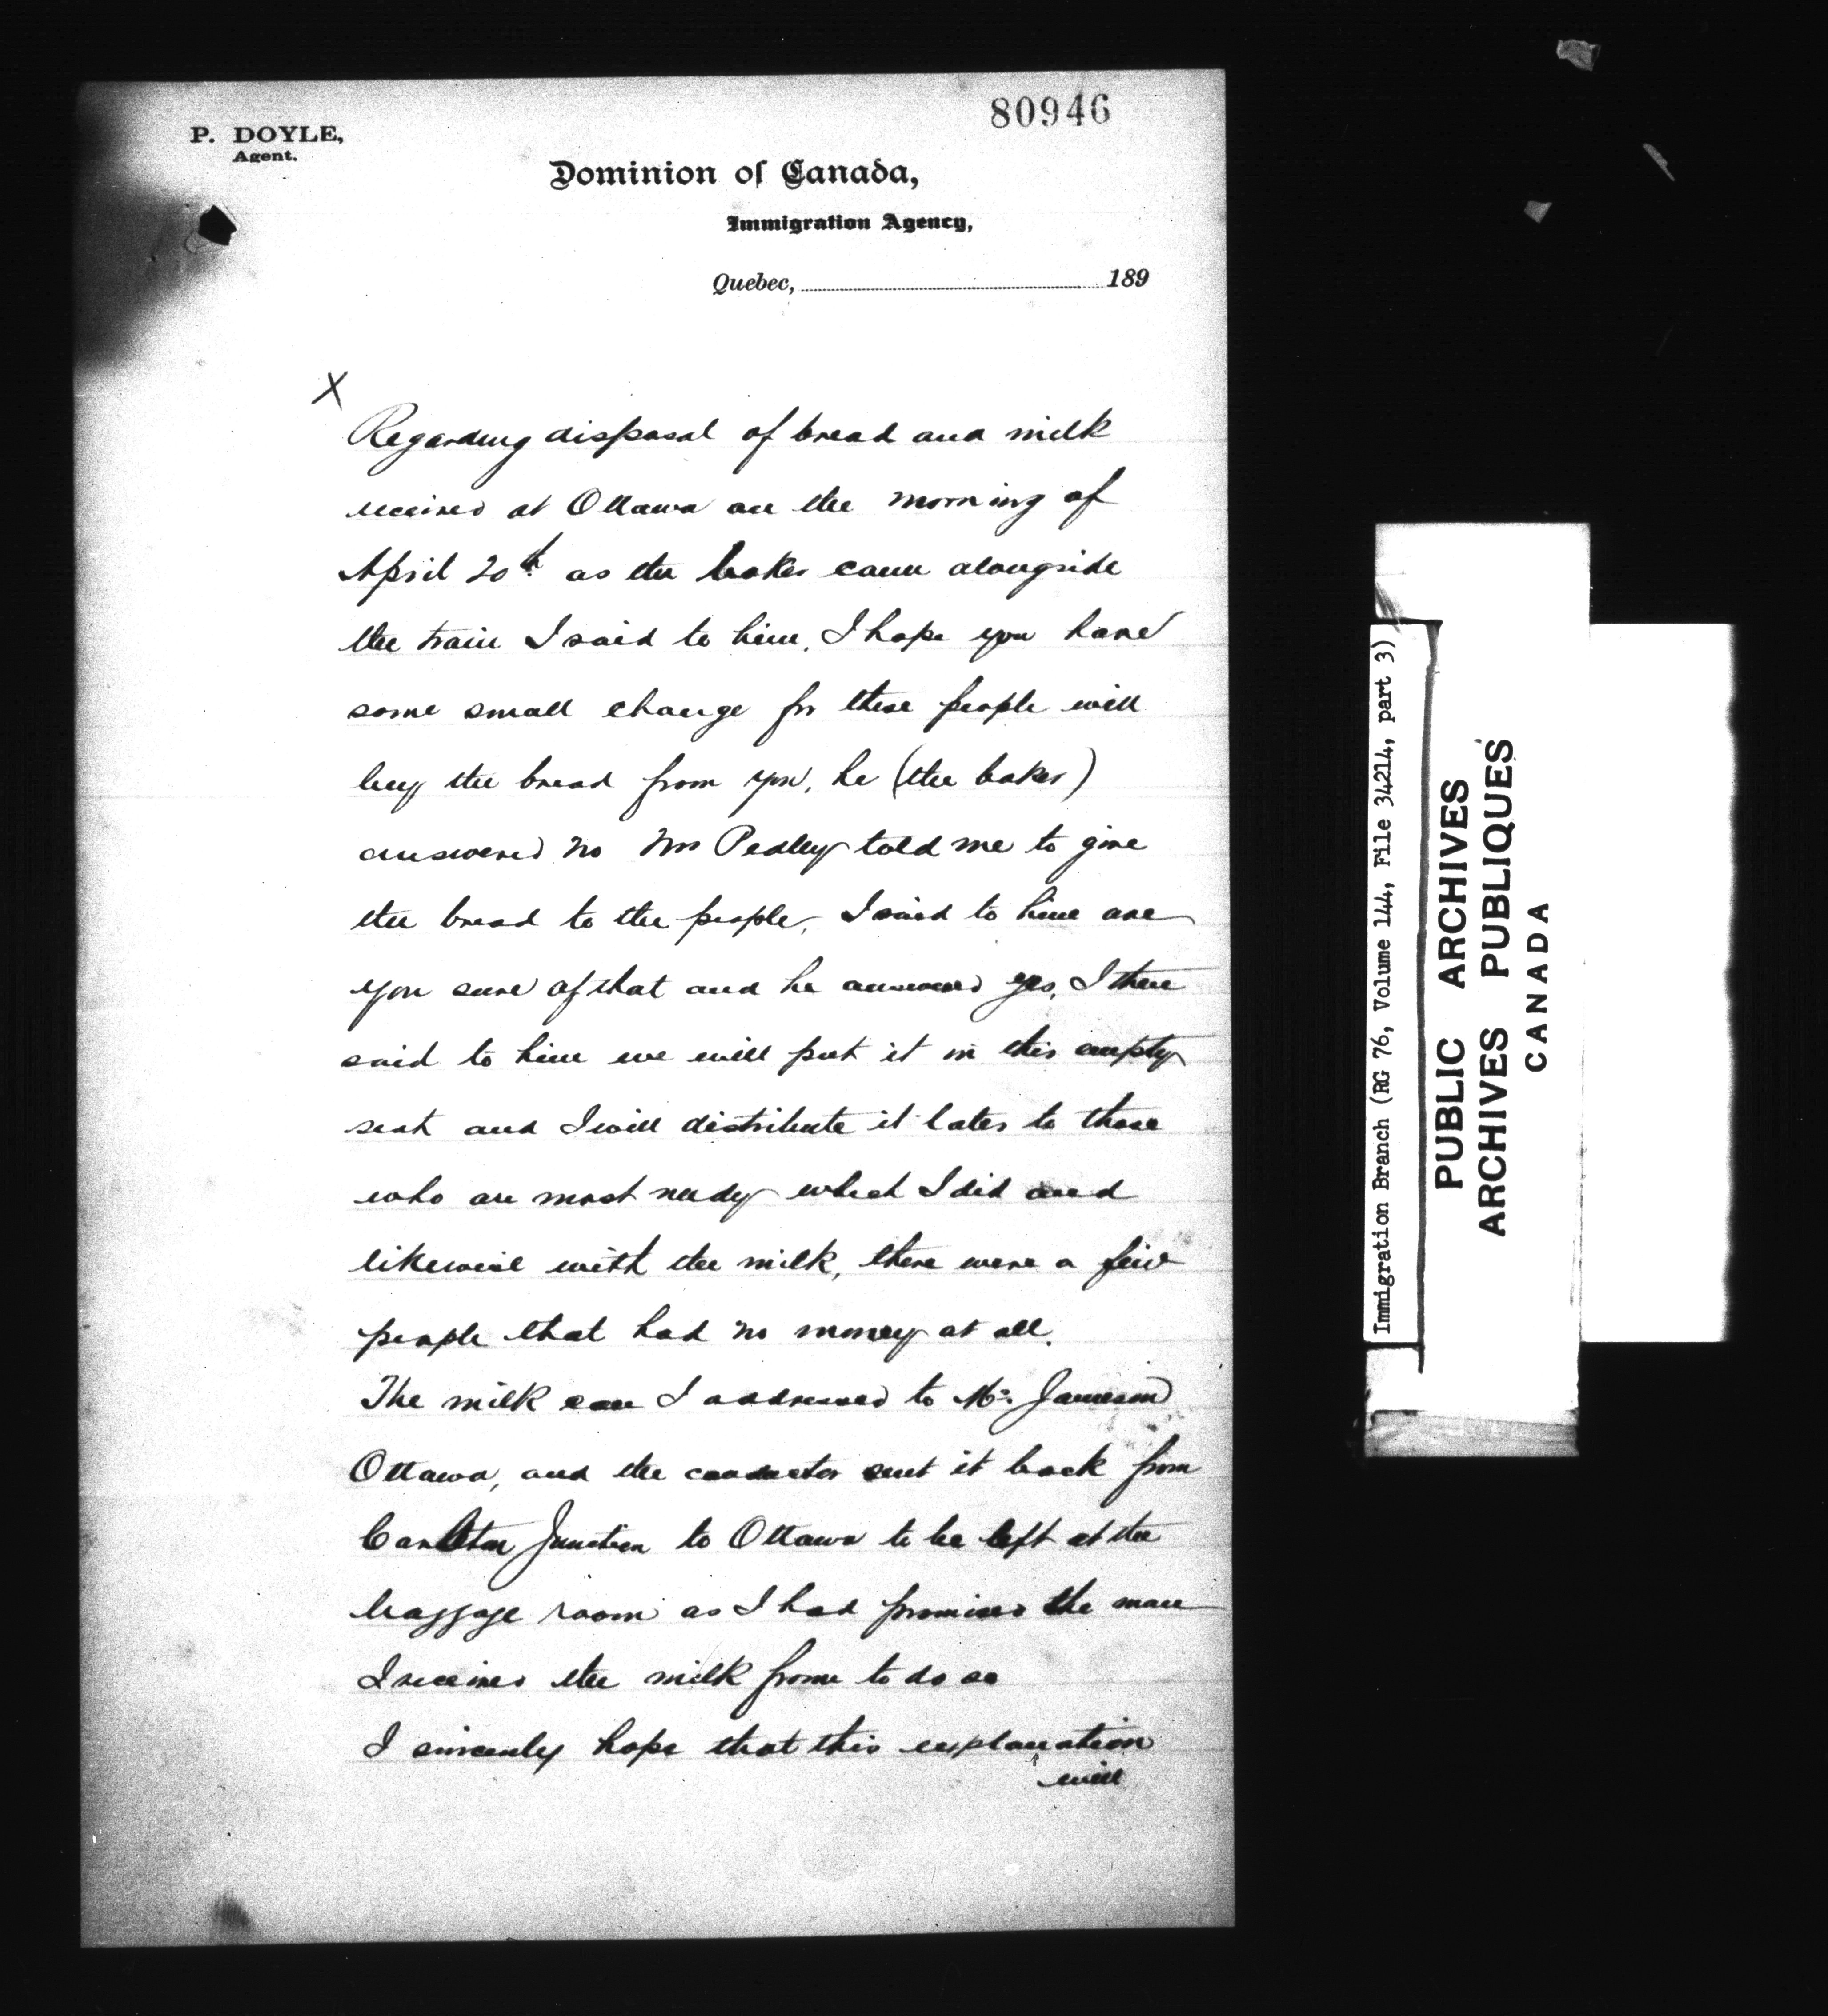 80946
P. DOYLE,
Agent.
Dominion of Canada,
Immigration Agency,
Quebec, 189
X
Regarding disposal of bread and milk
received at Ottawa on the morning of
April 20th as the baker came alongside
the train I said to him, I hope you have
some small change for these people will
buy the bread from you, he (the baker)
answered no Mr Pedley told me to give
the bread to the people, I said to him are
you sure of that and he answered yes, I then
said to him we will put it in this empty
seat and I will distribute it later to those
who are most needy which I did and
likewise with the milk, there were a few
people that had no money at all.
The milk can I addressed to Mr Jameson
Ottawa, and the conductor sent it back from
Carleton Junction to Ottawa to be left at the
baggage room as I had promised the man
I received the milk from to do so
I sincerely hope that this explanation
will
Immigration Branch (RG 76, Volume 144, File 34214, part 3)
PUBLIC ARCHIVES
ARCHIVES PUBLIQUES
CANADA